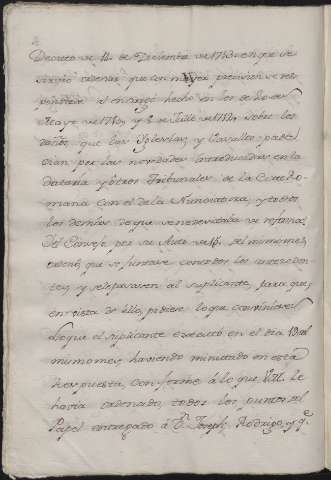 Decreto de 12. de Diciembre de 1713. en que se
sirvio ordenar que con mayor precision se res-
pondiese al encargo hecho en los de 10. de
Mayo de 1713, y 8. de Julio de 1713, sobre los
daños, que las Iglesias, y Vasallos pade-
cian por las novedades introducidas en la
Dataria, y otros Tribunales de la Corte Ro-
mana, con el de la Nunciatura, y todos
los demas de que se necesitaba de reforma.
Y el Consejo por su Auto de 16. del mismo mes,
ordenó, que se juntasen con todos los antecedan-
tes, y se le pasasen al suplicante, para que,
en vista de ellos, pidiese lo que conviniese,
Lo que el suplicante executó en el dia 19. del
mismo mes, haviendo minutado en esta
Respuesta, conforme á lo que V.M. le
havia ordenado, todos los puntos del
Papel entregado á Dn. Joseph Rodrigo, y qe.